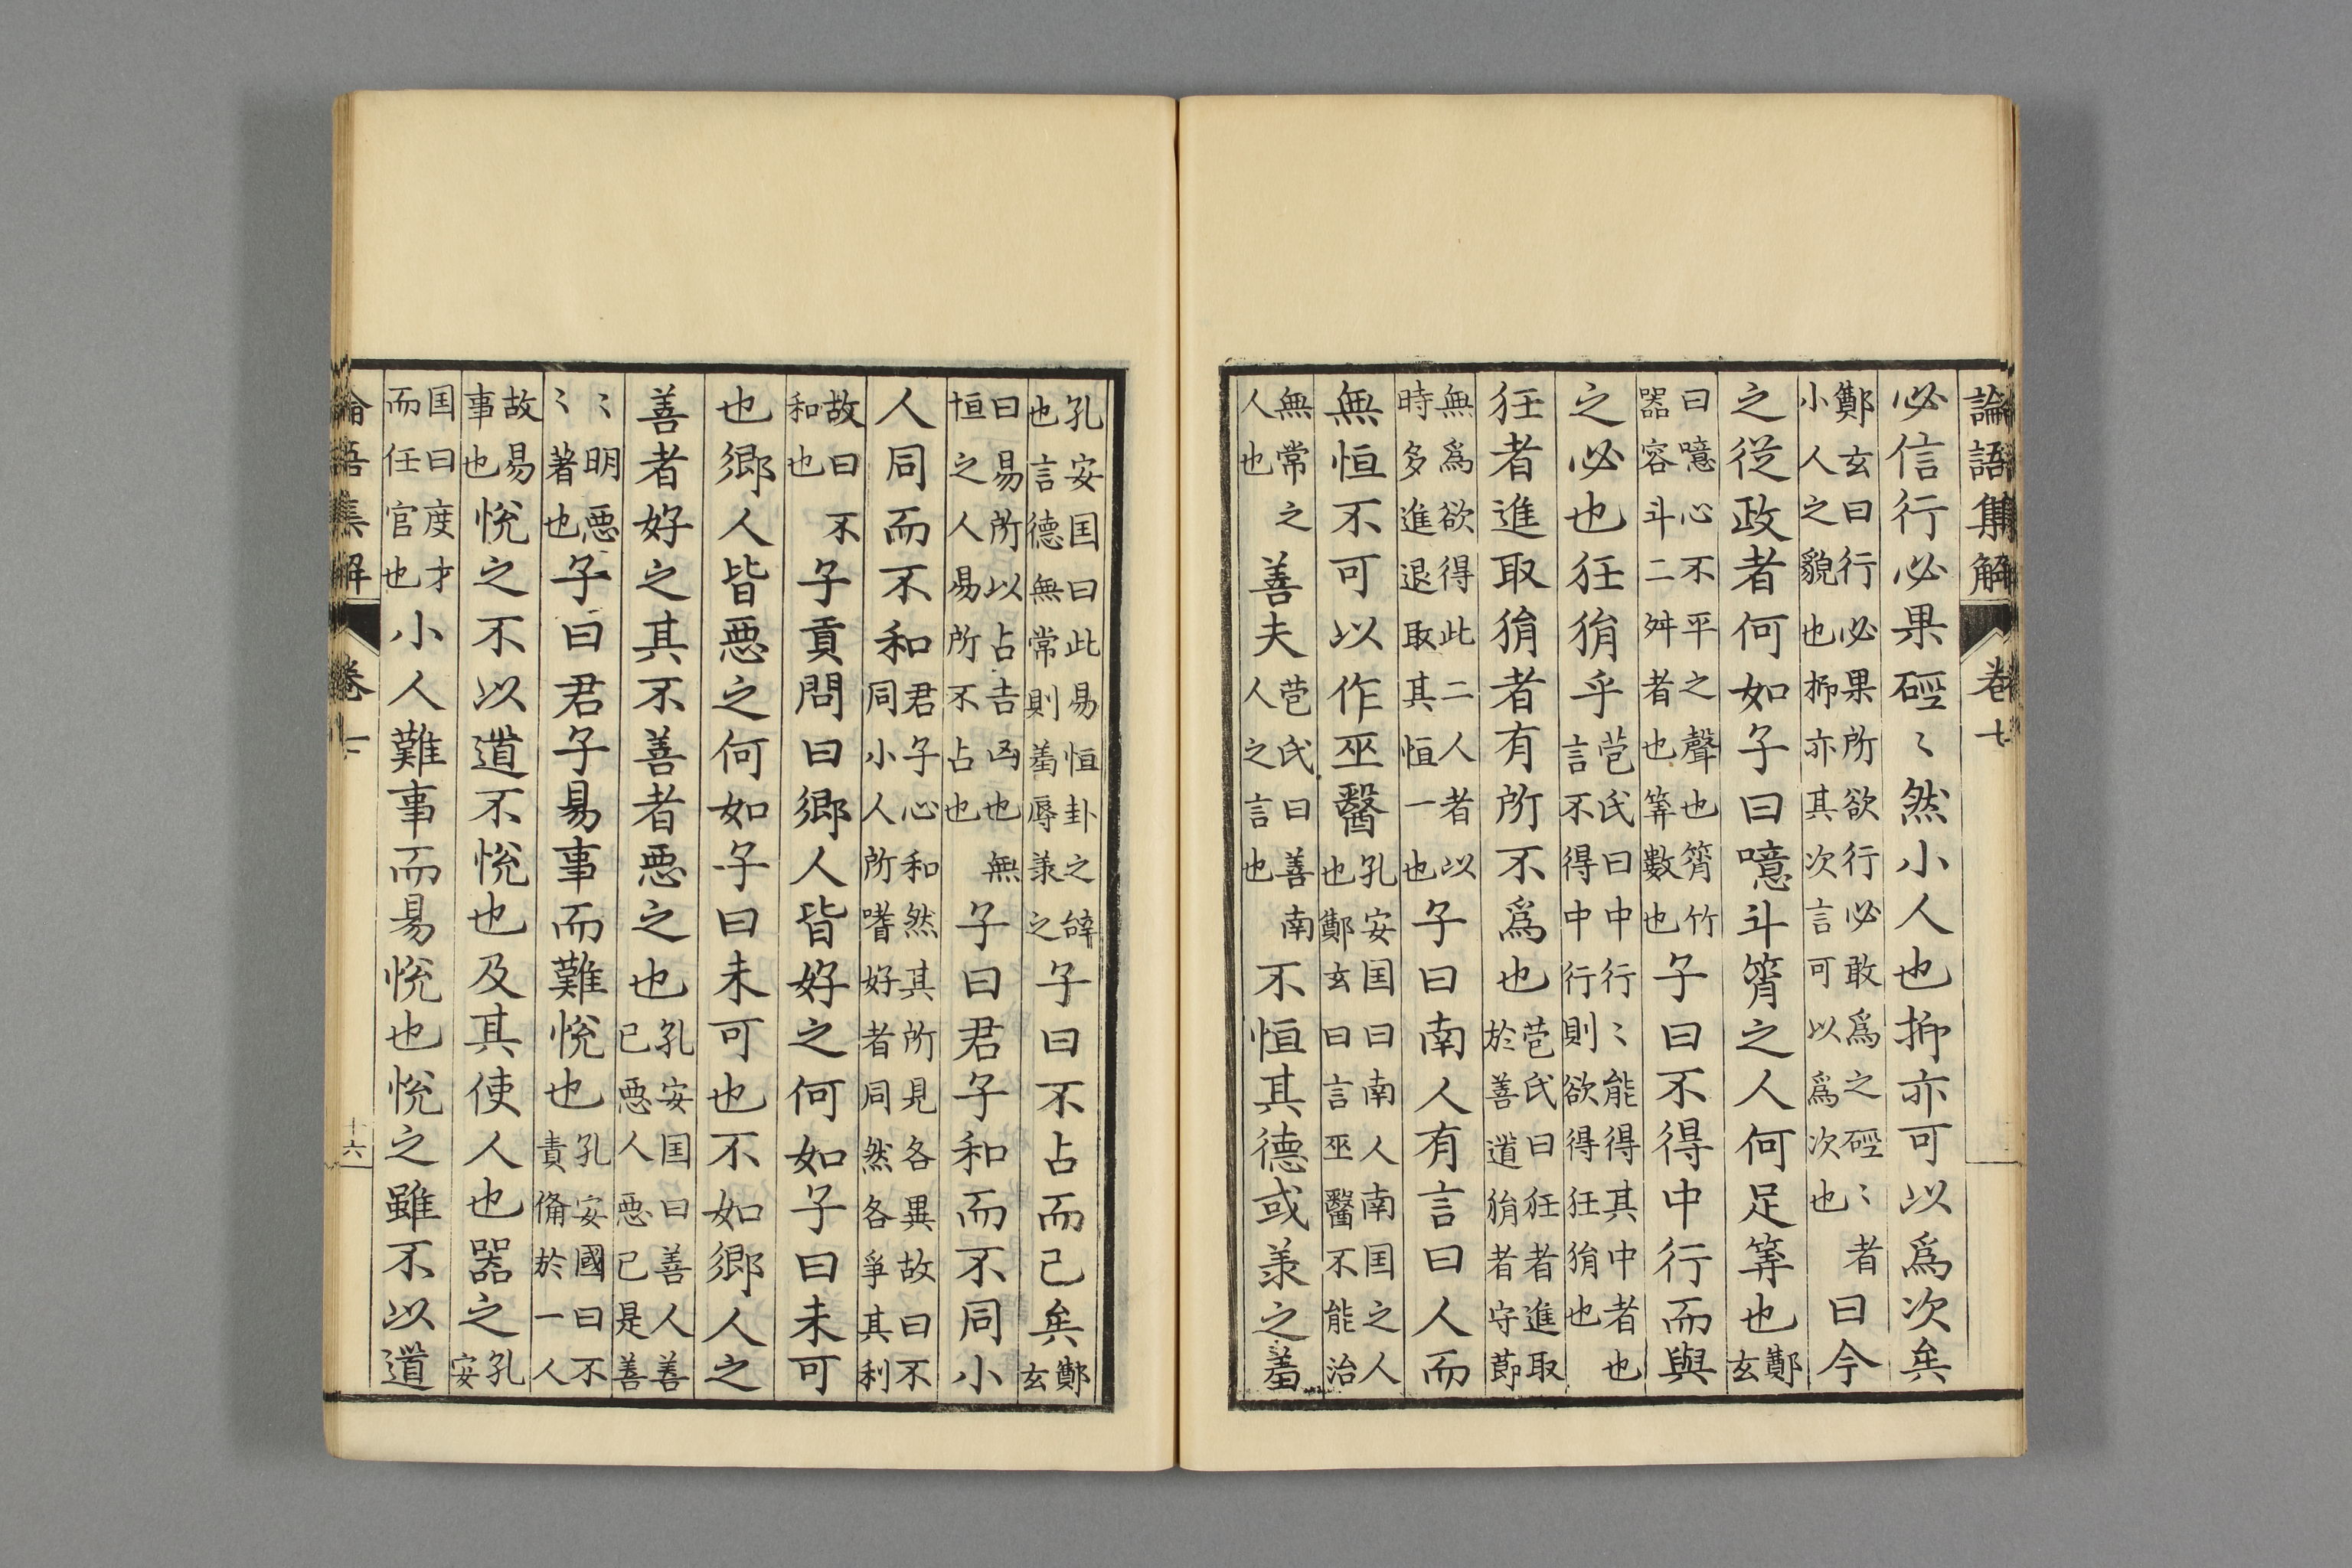 論語集解 卷七
必信行必果硜〻然小人也抑亦可以爲次矣
鄭玄曰行必果所欲行必敢爲之硜〻者小人之貌也抑亦其次言可以爲次也曰今
之從政者何如子曰噫斗筲之人何足筭也鄭玄
曰噫心不平之聲也筲竹器容斗二舛者也筭數也子曰不得中行而與
之必也狂狷乎苞氏曰中行〻能得其中者也言不得中行則欲得狂狷也
狂者進取狷者有所不爲也苞氏曰狂者進取於善道狷者守莭
無爲欲得此二人者以時多進退取其恒一也子曰南人有言曰人而
無恒不可以作巫醫孔安囯曰南人南囯之人也鄭玄曰言巫醫不能治
無常之人也善夫苞氏曰善南人之言也不恒其德或羕之羞
孔安囯曰此易恒卦之辞也言德無常則羞辱羕之子曰不占而已矣鄭玄
曰易所以占吉凶也無恒之人易所不占也子曰君子和而不同小
人同而不和君子心和然其所見各異故曰不同小人所嗜好者同然各爭其利
故曰不和也子貢問曰鄉人皆好之何如子曰未可
也鄉人皆惡之何如子曰未可也不如鄉人之
善者好之其不善者惡之也孔安囯曰善人善已惡人惡已是善
〻明惡〻著也子曰君子易事而難悅也孔安國曰不責俻於一人
故易事也悅之不以道不悅也及其使人也器之孔安
囯曰度才而任官也小人難事而易悅也悅之雖不以道
論語集解 卷七 十六